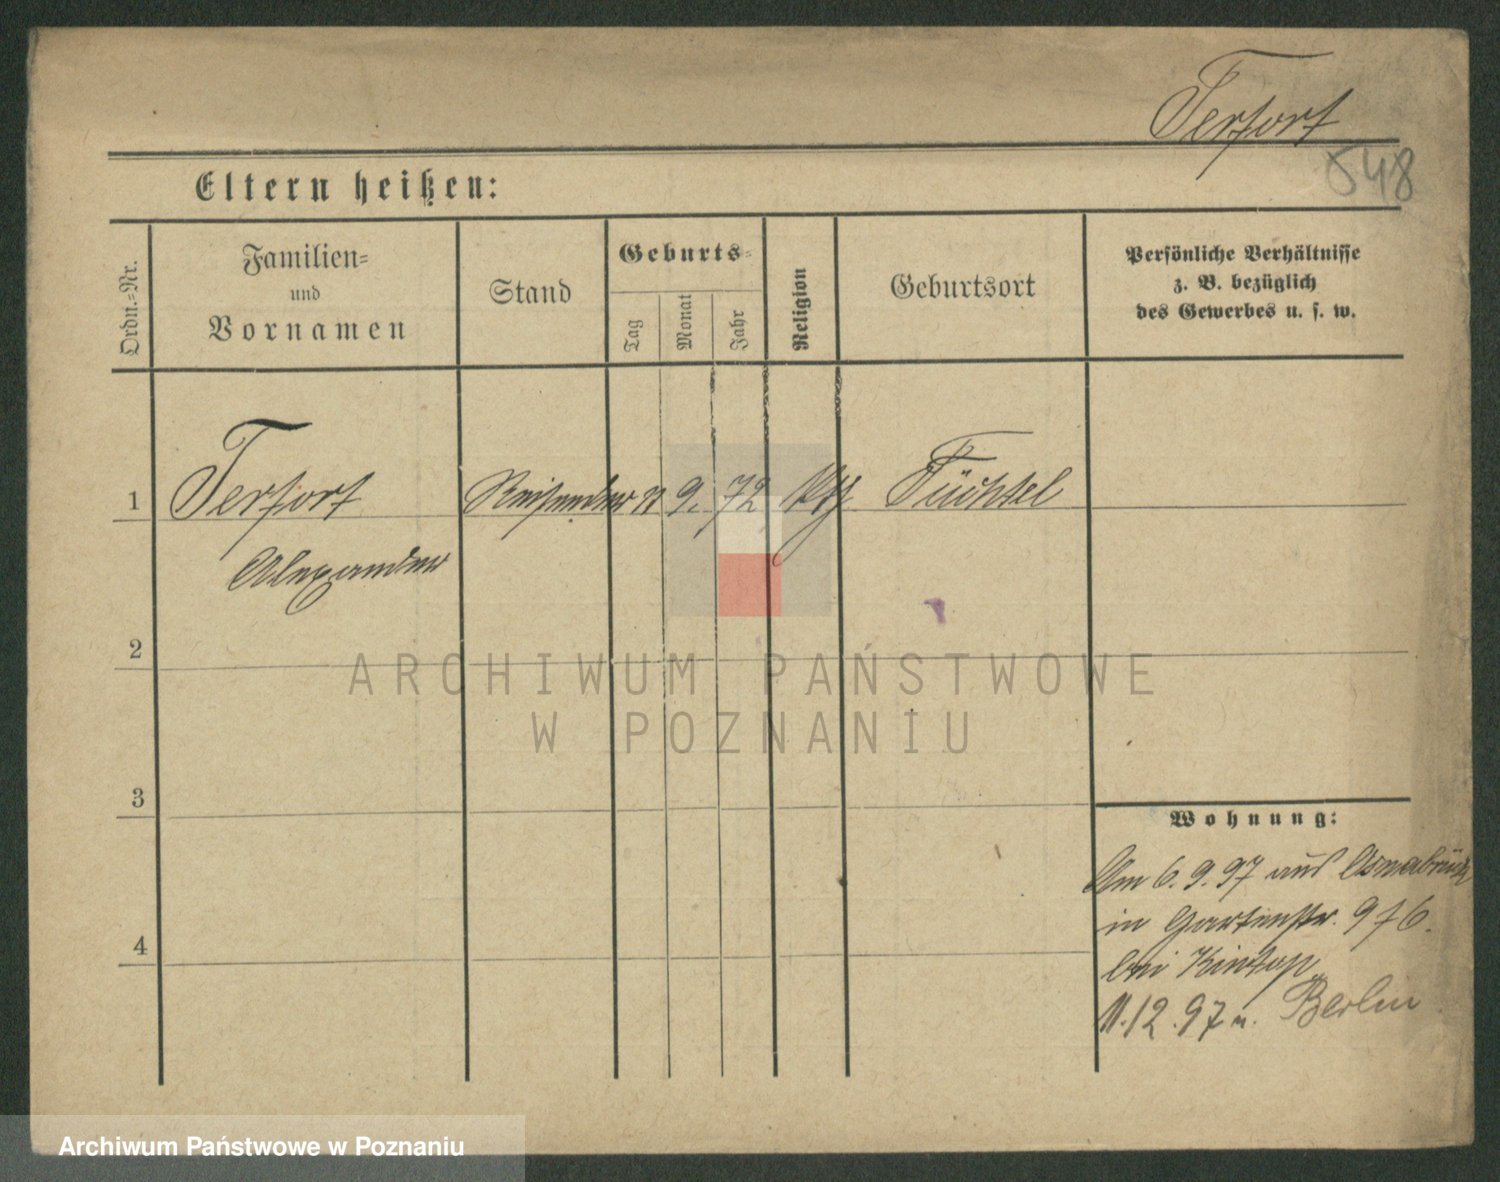 Terfort
548
Eltern heißen:
Ordn.=Nr.
Familien=
und
Vornamen
Stand
Geburts=
Tag
Monat
Jahr
Religion
Geburtsort
Persönliche Verhältnisse
z. B. bezüglich
des Gewerbes u. s. w.
1
Terfort
Reisender
11
9.
72
Füchtel
Alexander
2
ARCHIWUM PAŃSTWOWE
W POZNANIU
3
Wohnung:
Am 6. 9. 97 aus Osnabrück
in Gartenstr. 976.
4
bei Kintop
11.12.97 n. Berlin
Archiwum Państwowe w Poznaniu